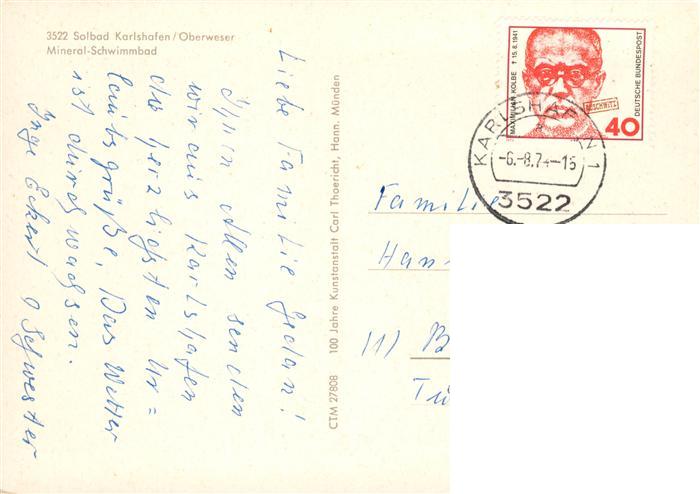 3522 Solbad Karlshafen/Oberweser
Mineral-Schwimmbad
Liebe Familie Gedan!
Ihnen Allen senden
wir aus Karlshafen
die herzlichsten Ur=
laubsgrüße. Das Wetter
ist durchwachsen.
Inge Eckert u Schwester
CTM 27808 100 Jahre Kunstanstalt Carl Thoericht, Hann. Münden
MAXIMILIAN KOLBE † 15.8.1941
AUSCHWITZ
DEUTSCHE BUNDESPOST
40
KARLSHAFEN 1
-6.-8.74-15
3522
Familie
Han
(1) B
Tü